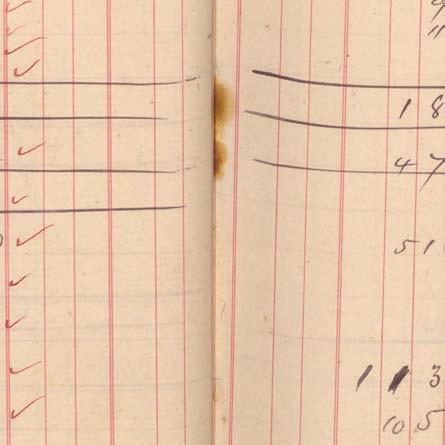 1 8
4 7
5 1
1 1 3
10 5